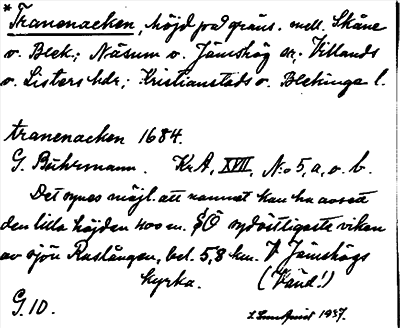 * Tranenacken, höjd på gräns. mell. Skåne
o. Blek.; Näsum o. Jämshög sr; Villands
o. Listers hdr; Kristianstads o. Blekinge l.
tranenacken 1684.
G. Buhrmann. KrA, XVII, N:o 5, a, o. b.
Det synes möjl. att namnet kan ha avsett
den lilla höjden 400 m. SÖ sydöstligaste viken
av sjön Raslången, bel. 5,8 km. V Jämshögs
kyrka. (Vänd!)
G. 10. 1937.